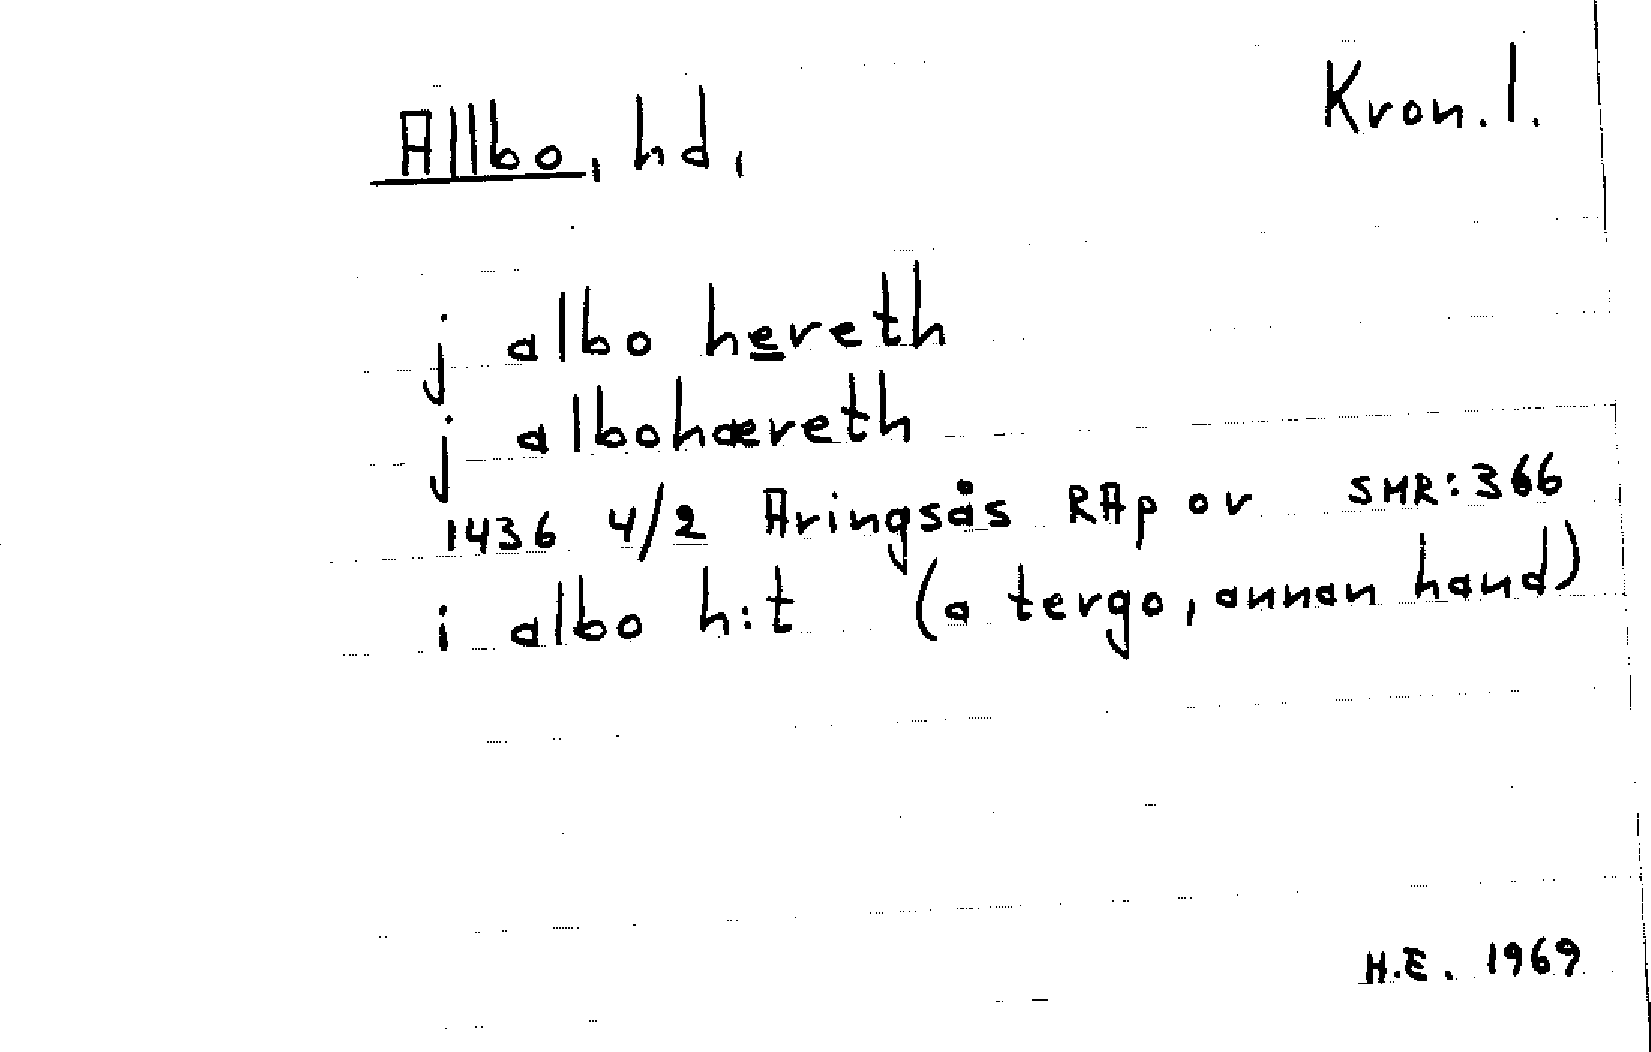 Allbo, hd,
Kron. l.
j albo hereth
j albohæreth
1436 4/2 Aringsås RAp or SMR:366
i albo h:t (a tergo, annan hand)
H.E. 1969